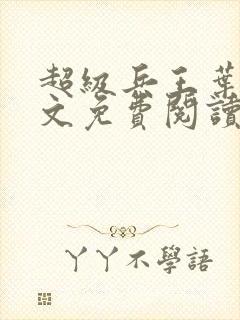 超級兵王葉
文免費閱讀
丫丫不學語